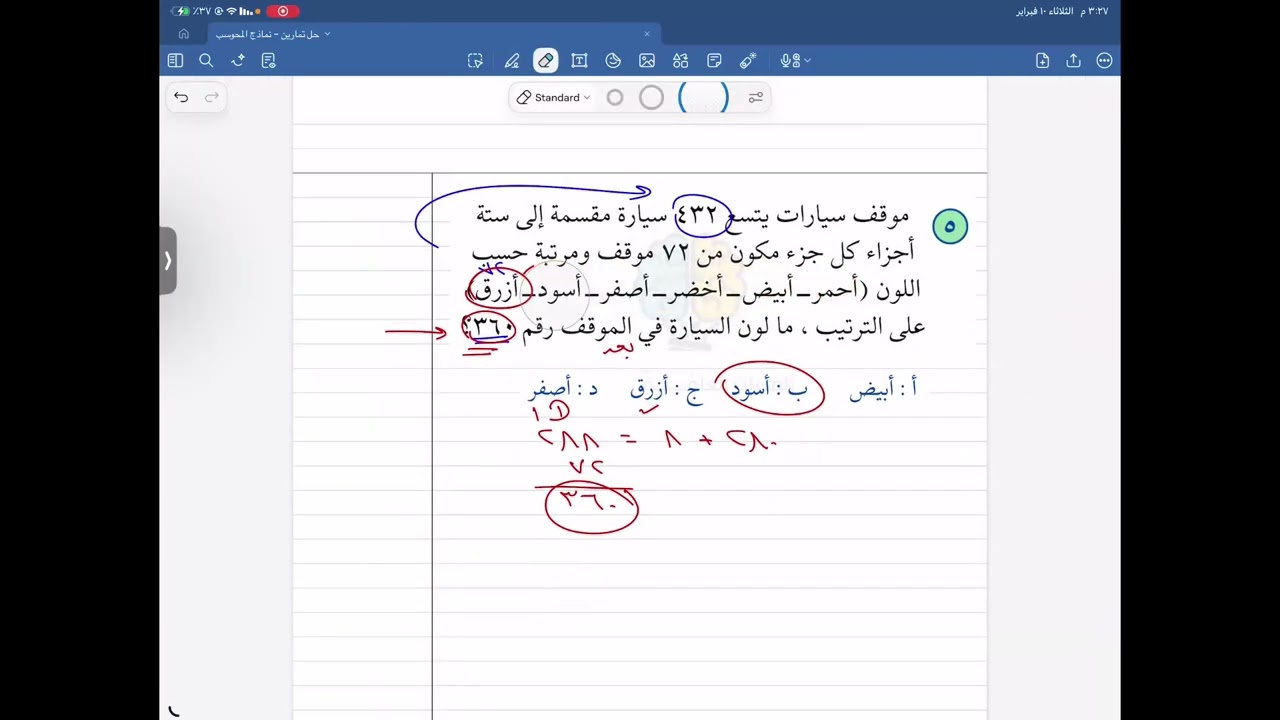 ٣:٢٧ م الثلاثاء ١٠ فبراير
٪٣٧
حل تمارين - نماذج المحوسب
Standard
٥
موقف سيارات يتسع ٤٣٢ سيارة مقسمة إلى ستة
أجزاء كل جزء مكون من ٧٢ موقف ومرتبة حسب
اللون (أحمر – أبيض – أخضر – أصفر – أسود – أزرق)
على الترتيب ، ما لون السيارة في الموقف رقم ٣٦٠؟
بعد
أ : أبيض ب : أسود ج : أزرق د : أصفر
١ ١
٢٨٨ = ٨ + ٢٨٠
٧٢
٣٦٠